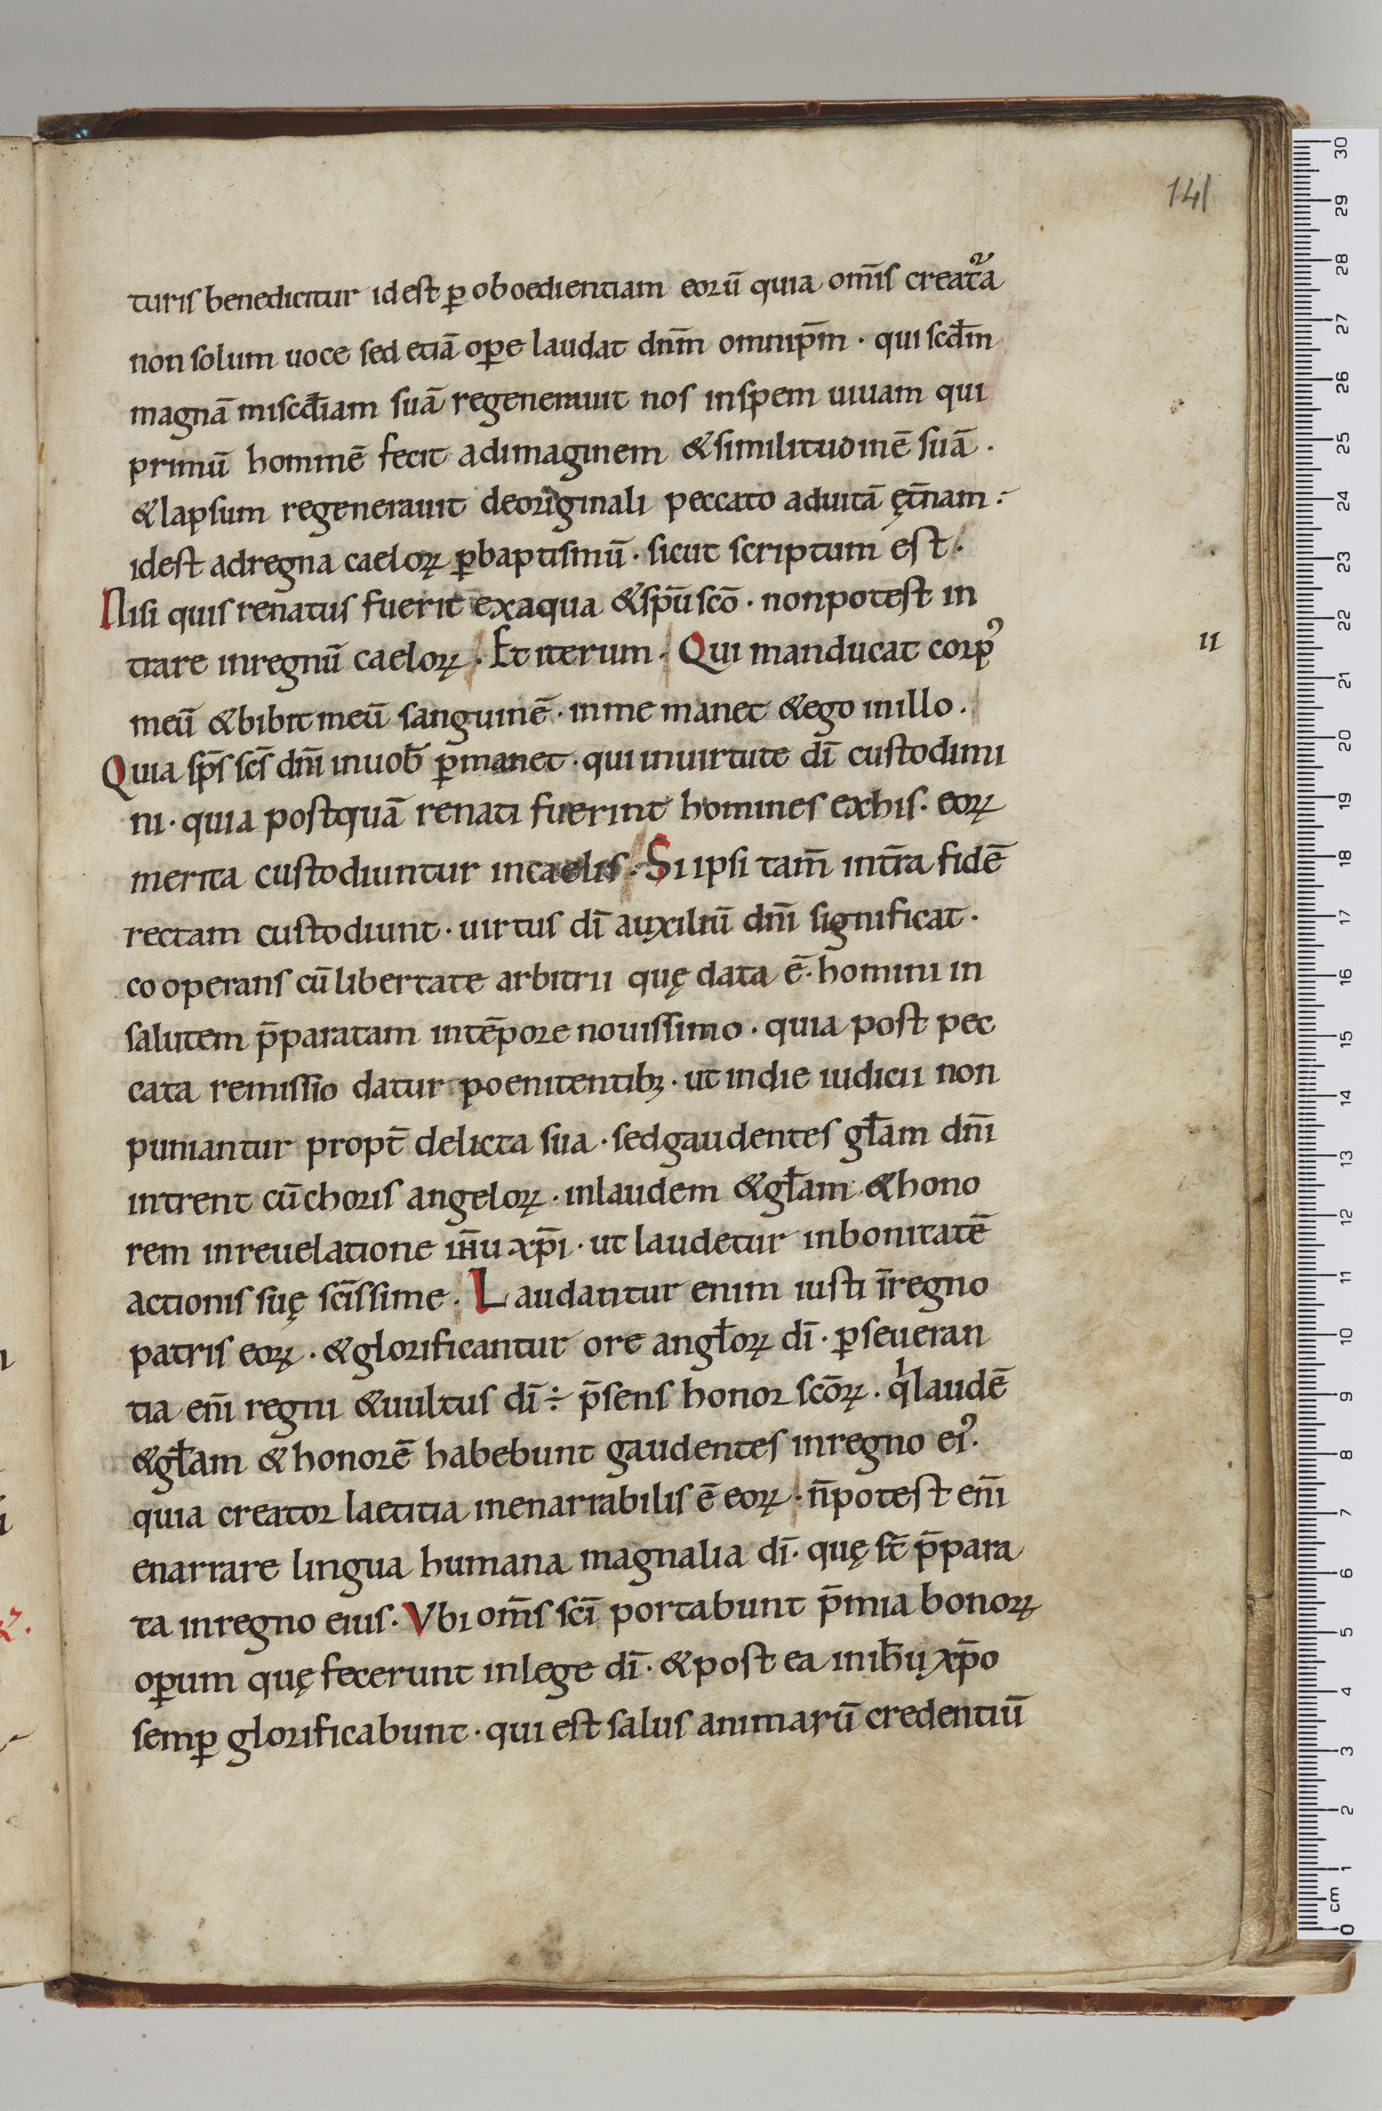 141
turis benedicitur idest ꝑ oboedientiam eorū quia om̄is creat᷑a
non solum uoce sed etiā oꝑe laudat dn̄m omnip̄m · qui scd̄m
magnā miscd̄iam suā regenerauit nos inspem uiuam qui
primū hominē fecit adimaginem & similitudinē suā ·
& lapsum regenerauit deoriginali peccato aduitā ęt̄nam :
idest adregna caeloꝝ ꝑbaptismū · sicut scriptum est ·
Nisi quis renatus fuerit exaqua & sp̄u scō · nonpotest in
trare inregnū caeloꝝ · Et iterum · Qui manducat corpꝰ
meū & bibit meū sanguinē · inme manet & ego inillo ·
Quia sp̄s sc̄s dn̄i inuob̄ ꝑmanet · qui inuirtute dī custodimi
ni · quia postquā renati fuerint homines exhis · eoꝝ
merita custodiuntur incaelis · Si ipsi tam̄ int̄ra fidē
rectam custodiunt · uirtus dī auxiliū dn̄i significat ·
cooperans cū libertate arbitrii quę data ē · homini in
salutem p̄paratam intēpore nouissimo · quia post pec
cata remissio datur poenitentibꝫ · ut indie iudicii non
puniantur propt̄ delicta sua · sedgaudentes gl̄am dn̄i
intrent cū choris angeloꝝ · inlaudem & gl̄am & hono
rem inreuelatione ih̄u xp̄i · ut laudetur inbonitatē
actionis suę sc̄issime · Laudantur enim iusti īregno
patris eoꝝ · & glorificantur ore angl̄oꝝ dī · ꝑseueran
tia eni̅ regni & uultus dī ÷ p̄sens honor scōꝝ · qⁱ laudē
& gl̄am & honorē habebunt gaudentes inregno eiꝰ ·
quia creator laetitia inenarrabilis ē eoꝝ · n̄ potest eni̅
enarrare lingua humana magnalia dī · quę st̄ p̄para
ta inregno eius · Vbi om̄s sc̄i portabunt p̄mia bonoꝝ
oꝑum quę fecerunt inlege dī · & post ea inih̄u xp̄o
semꝑ glorificabunt · qui est salus animarū credentiū
11